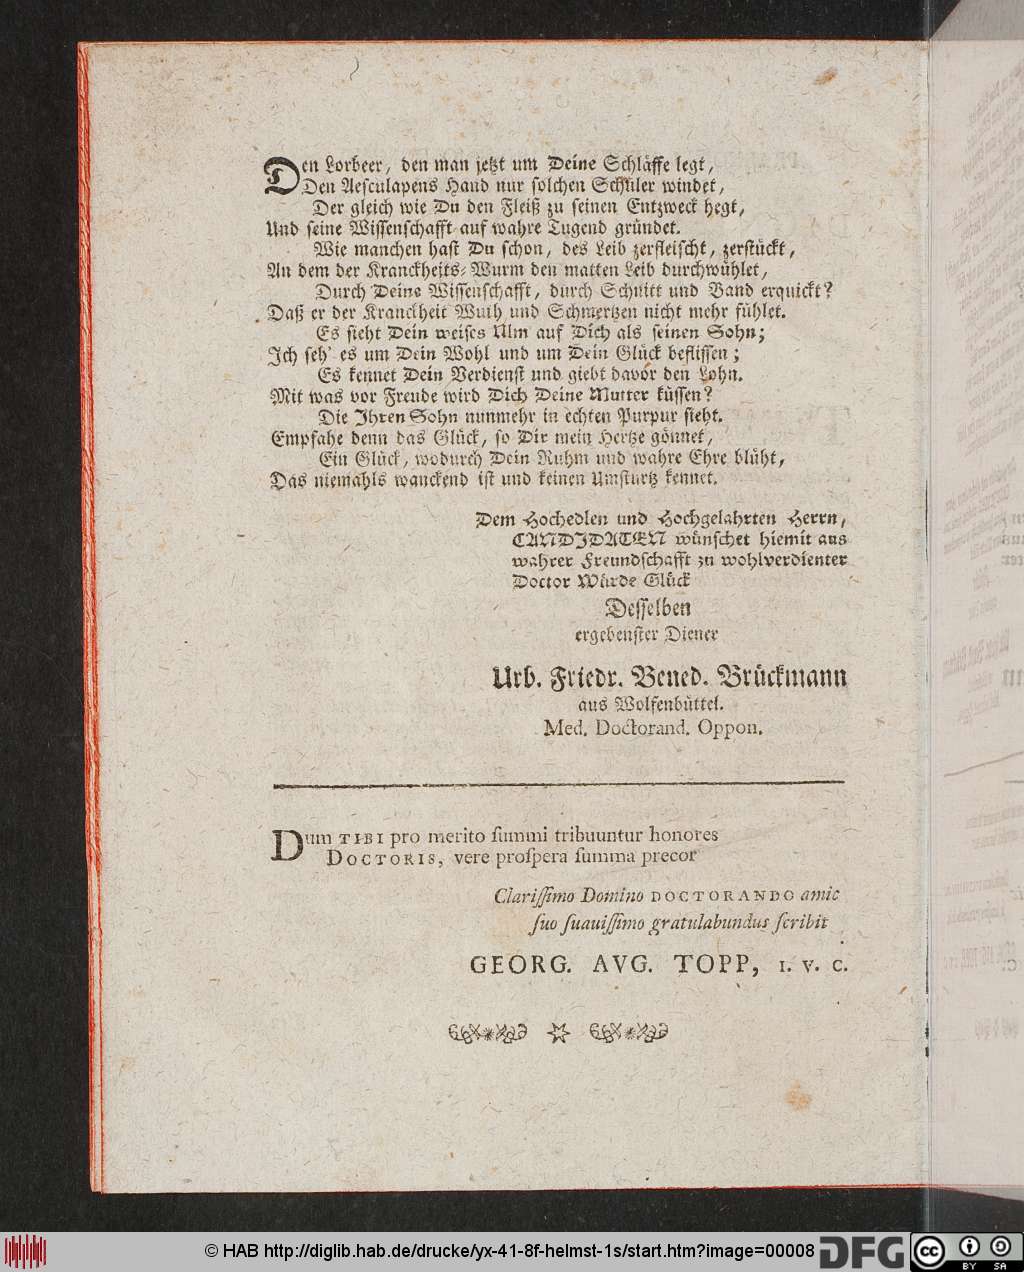 Den Lorbeer, den man jetzt um Deine Schläffe legt,
Den Aesculapens Hand nur solchen Schüler windet,
Der gleich wie Du den Fleiß zu seinen Entzweck hegt,
Und seine Wissenschafft auf wahre Tugend gründet.
Wie manchen hast Du schon, des Leib zerfleischt, zerstückt,
An dem der Kranckheits-Wurm den matten Leib durchwühlet,
Durch Deine Wissenschafft, durch Schnitt und Band erquickt?
Daß er der Kranckheit Wuth und Schmertzen nicht mehr fühlet.
Es sieht Dein weises Ulm auf Dich als seinen Sohn;
Ich seh' es um Dein Wohl und um Dein Glück beflissen;
Es kennet Dein Verdienst und giebt davor den Lohn.
Mit was vor Freude wird Dich Deine Mutter küssen?
Die Ihren Sohn nunmehr in echten Purpur sieht.
Empfahe denn das Glück, so Dir mein Hertze gönnet,
Ein Glück, wodurch Dein Ruhm und wahre Ehre blüht,
Das niemahls wanckend ist und keinen Umsturtz kennet.
Dem Hochedlen und Hochgelahrten Herrn,
CANDIDATEN wünschet hiemit aus
wahrer Freundschafft zu wohlverdienter
Doctor Würde Glück
Desselben
ergebenster Diener
Urb. Friedr. Bened. Brückmann
aus Wolfenbüttel.
Med. Doctorand. Oppon.
Dum TIBI pro merito ſummi tribuuntur honores
DOCTORIS, vere proſpera ſumma precor
Clariſſimo Domino DOCTORANDO amic
ſuo ſuauiſſimo gratulabundus ſcribit
GEORG. AVG. TOPP, I. V. C.
© HAB http://diglib.hab.de/drucke/yx-41-8f-helmst-1s/start.htm?image=00008
DFG
cc BY SA